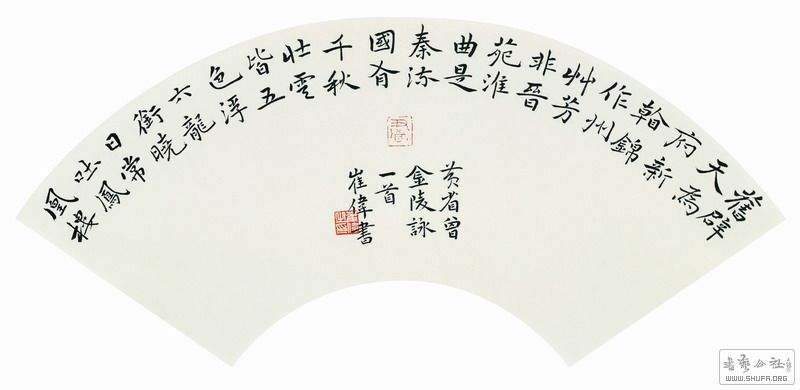 舊辟
天為
府新
斡錦
作州
艸芳
非晉
苑淮
曲是
秦流
國有
千秋
壯雲
皆五
色浮
六龍
銜曉
日常
吐鳳
凰樓
黃省曾
金陵詠
一首
崔偉書
書藝公社
WWW.SHUFA.ORG